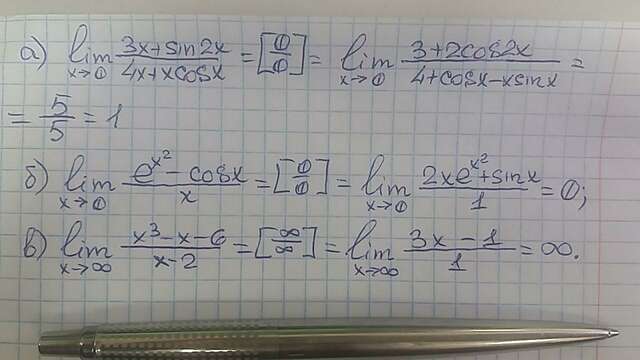 а) lim x→0 (3x+sin2x)/(4x+xcosx) = [0/0] = lim x→0 (3+2cos2x)/(4+cosx-xsinx) =
= 5/5 = 1
б) lim x→0 (e^x² - cosx)/x = [0/0] = lim x→0 (2xe^x² + sinx)/1 = 0;
в) lim x→∞ (x³-x-6)/(x-2) = [∞/∞] = lim x→∞ (3x-1)/1 = ∞.